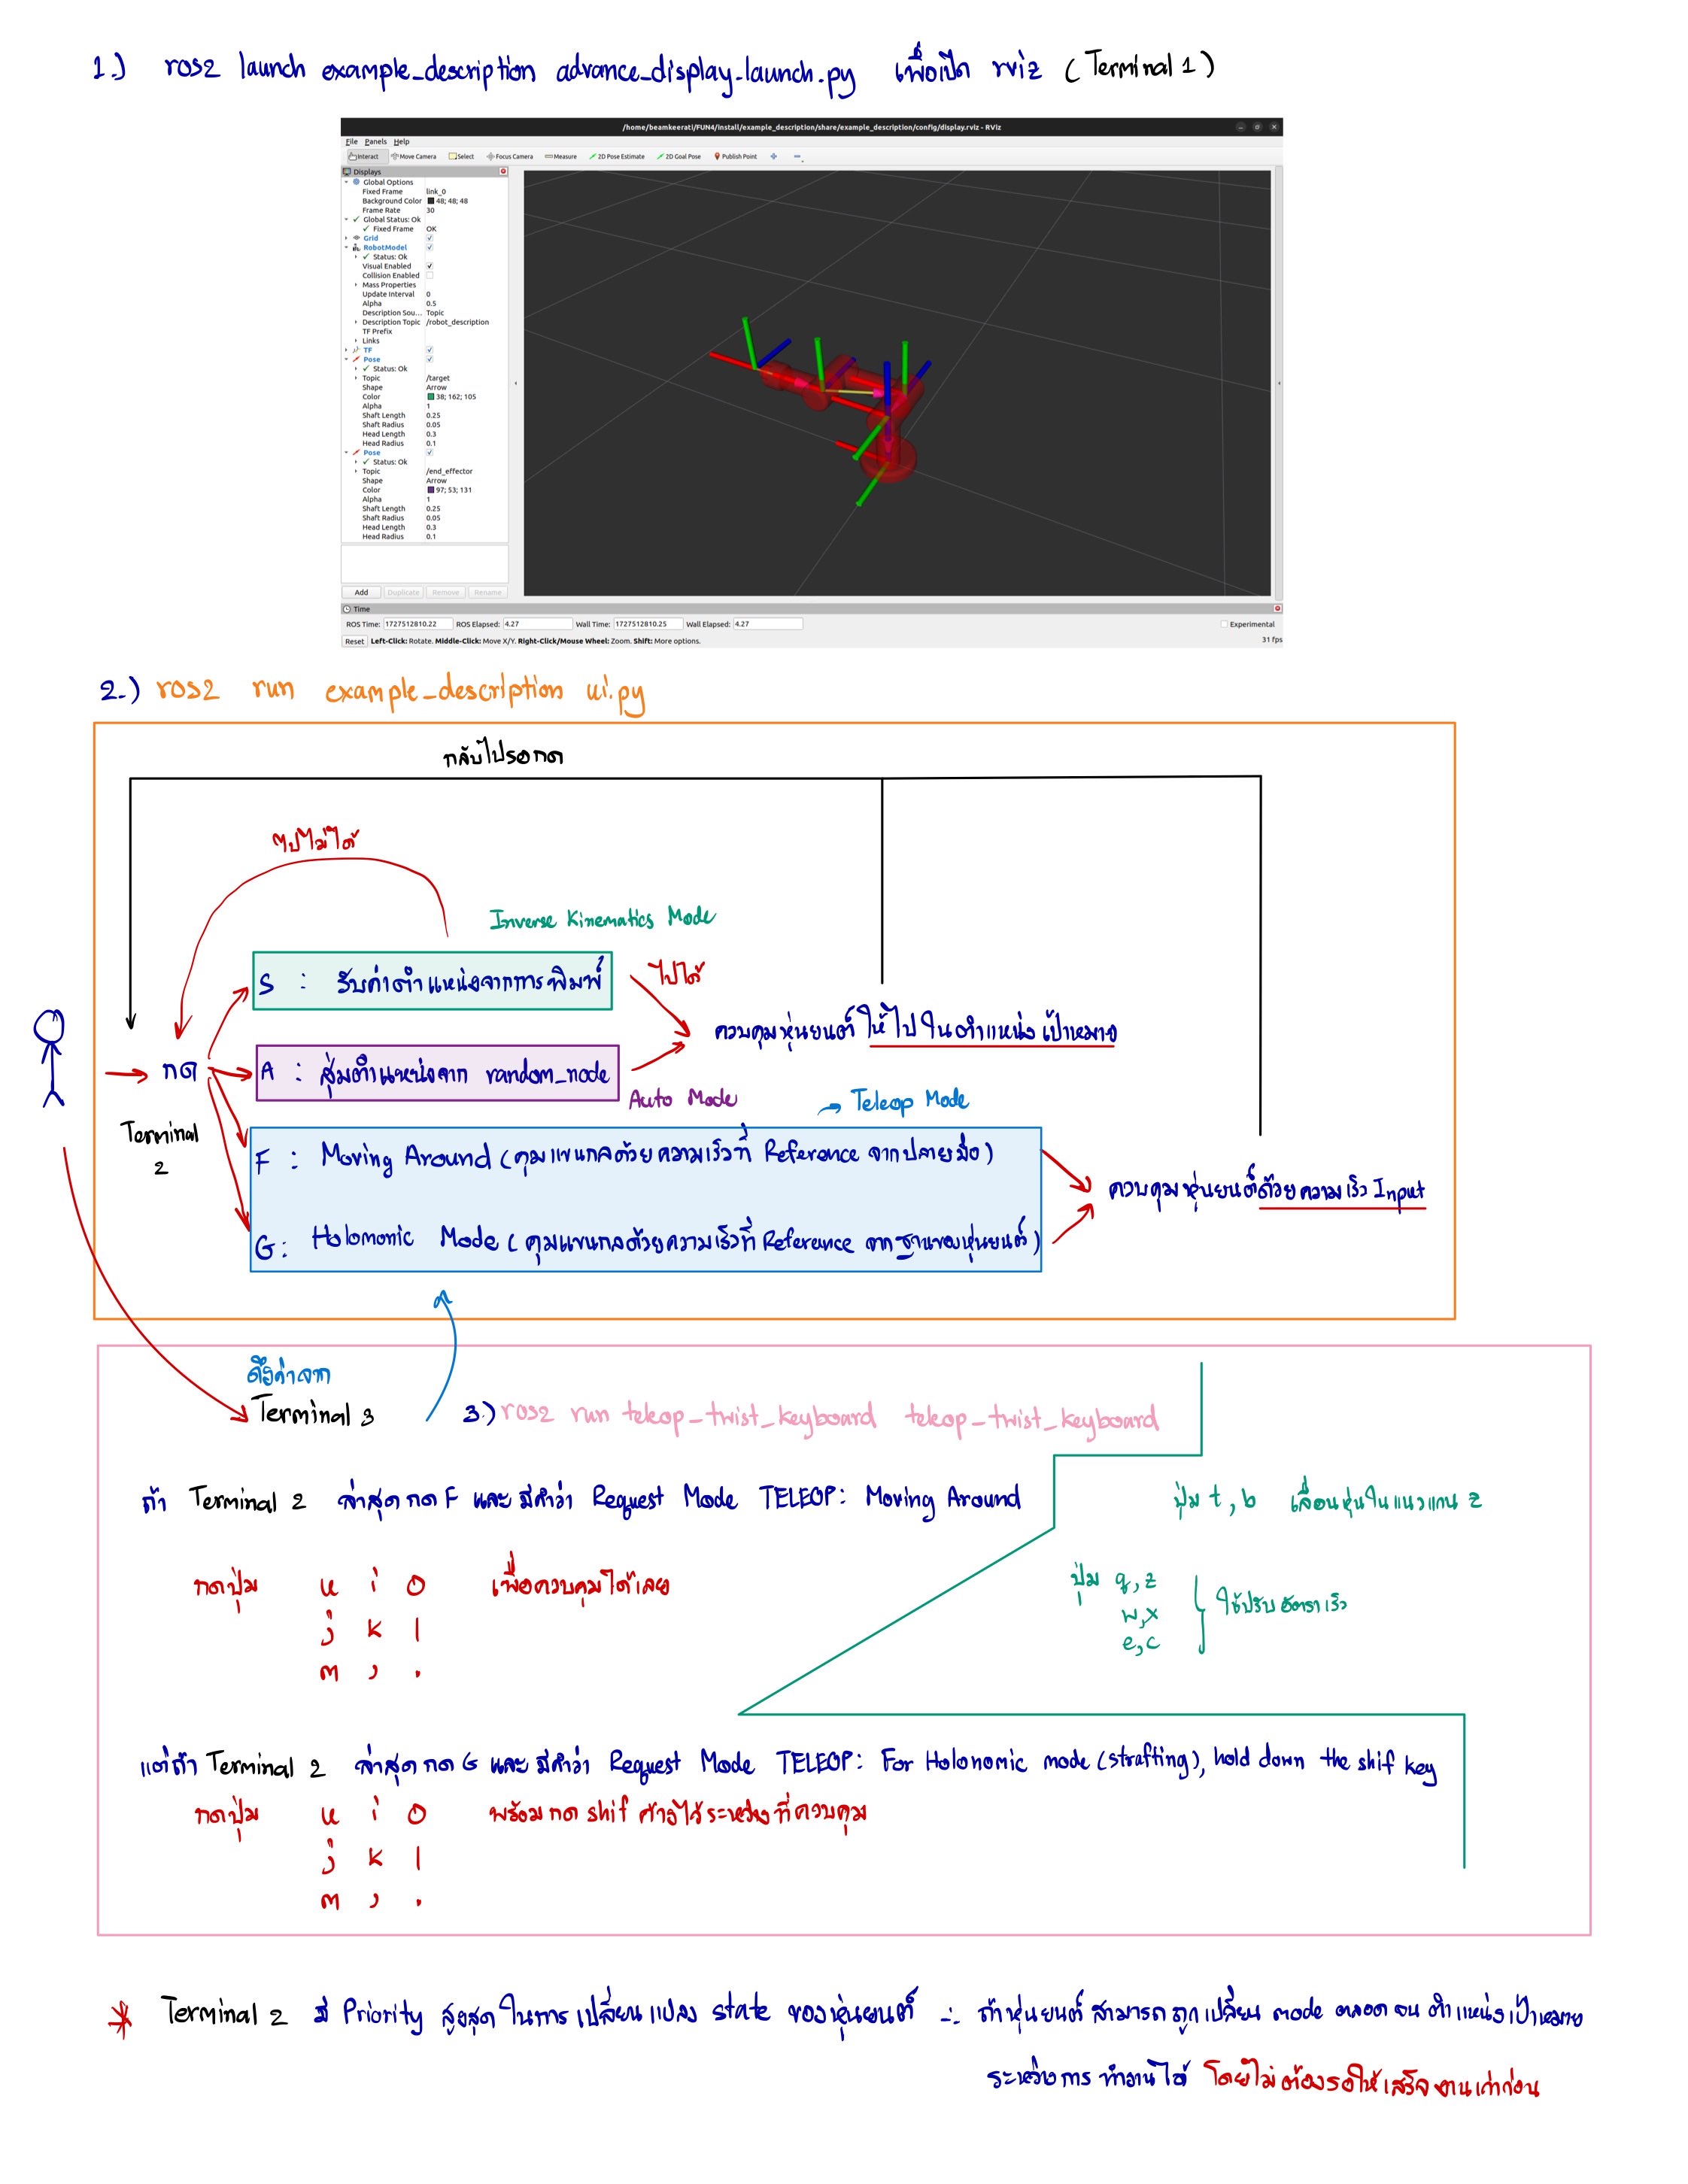 1.) ros2 launch example_description advance_display-launch.py เพื่อเปิด rviz (Terminal 1)
/home/beamkeerati/FUN4/install/example_description/share/example_description/config/display.rviz - RViz
File Panels Help
Interact Move Camera Select Focus Camera Measure 2D Pose Estimate 2D Goal Pose Publish Point
Displays
Global Options
Fixed Frame link_0
Background Color 48; 48; 48
Frame Rate 30
Global Status: Ok
Fixed Frame OK
Grid
RobotModel
Status: Ok
Visual Enabled
Collision Enabled
Mass Properties
Update Interval 0
Alpha 0.5
Description Sou... Topic
Description Topic /robot_description
TF Prefix
Links
TF
Pose
Status: Ok
Topic /target
Shape Arrow
Color 38; 162; 105
Alpha 1
Shaft Length 0.25
Shaft Radius 0.05
Head Length 0.3
Head Radius 0.1
Pose
Status: Ok
Topic /end_effector
Shape Arrow
Color 97; 53; 131
Alpha 1
Shaft Length 0.25
Shaft Radius 0.05
Head Length 0.3
Head Radius 0.1
Add Duplicate Remove Rename
Time
ROS Time: 1727512810.22 ROS Elapsed: 4.27 Wall Time: 1727512810.25 Wall Elapsed: 4.27 Experimental
Reset Left-Click: Rotate. Middle-Click: Move X/Y. Right-Click/Mouse Wheel: Zoom. Shift: More options. 31 fps
2.) ros2 run example_description ui.py
กลับไปรอกด
ไปไม่ได้
Inverse Kinematics Mode
S : รับค่าตำแหน่งจากการพิมพ์
ไปได้
ควบคุมหุ่นยนต์ ให้ไปในตำแหน่งเป้าหมาย
กด
A : สุ่มตำแหน่งจาก random_node
Auto Mode
Teleop Mode
Terminal 2
F : Moving Around (คุมแขนกลด้วยความเร็วที่ Reference จากปลายมือ)
ควบคุมหุ่นยนต์ด้วยความเร็ว Input
G : Holomonic Mode (คุมแขนกลด้วยความเร็วที่ Reference จากฐานของหุ่นยนต์)
ดึงค่าจาก
Terminal 3
3.) ros2 run teleop_twist_keyboard teleop_twist_keyboard
ถ้า Terminal 2 ล่าสุดกด F และ มีคำว่า Request Mode TELEOP: Moving Around
ปุ่ม t, b เลื่อนหุ่นในแนวแกน z
กดปุ่ม u i o เพื่อควบคุมได้เลย
j k l
m , .
ปุ่ม q, z
w, x
e, c
ใช้ปรับอัตราเร็ว
แต่ถ้า Terminal 2 ล่าสุดกด G และ มีคำว่า Request Mode TELEOP: For Holonomic mode (strafting), hold down the shif key
กดปุ่ม u i o พร้อมกด shif ค้างไว้ระหว่างที่ควบคุม
j k l
m , .
* Terminal 2 มี Priority สูงสุดในการเปลี่ยนแปลง state ของหุ่นยนต์ ∴ ถ้าหุ่นยนต์สามารถถูกเปลี่ยน mode ตลอดจน ตำแหน่งเป้าหมาย
ระหว่างการทำงานได้ โดยไม่ต้องรอให้เสร็จงานเก่าก่อน